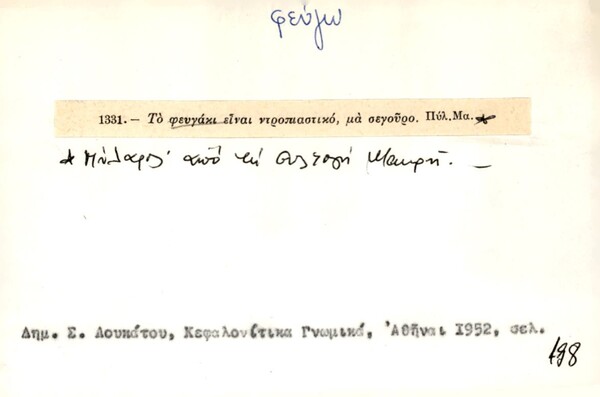 φεύγω
1331.— Τὸ φευγάκι εἶναι ντροπιαστικό, μὰ σεγοῦρο. Πύλ.Μα.*
* Πύλαρος· ἀπὸ τὴ συλλογὴ Μακρῆ. —
Δημ. Σ. Λουκάτου, Κεφαλονίτικα Γνωμικά, Ἀθῆναι 1952, σελ.
198